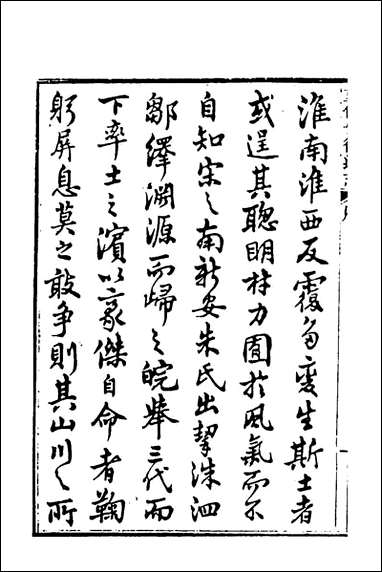 淮南淮西反覆多变生斯土者
或逞其聰明材力囿於风氣而不
自知宋之南新安朱氏出挈洙泗
鄒繹渊源而歸之皖舉三代而
下率土之濱以豪傑自命者鞠
躬屏息莫之敢争則其山川之所